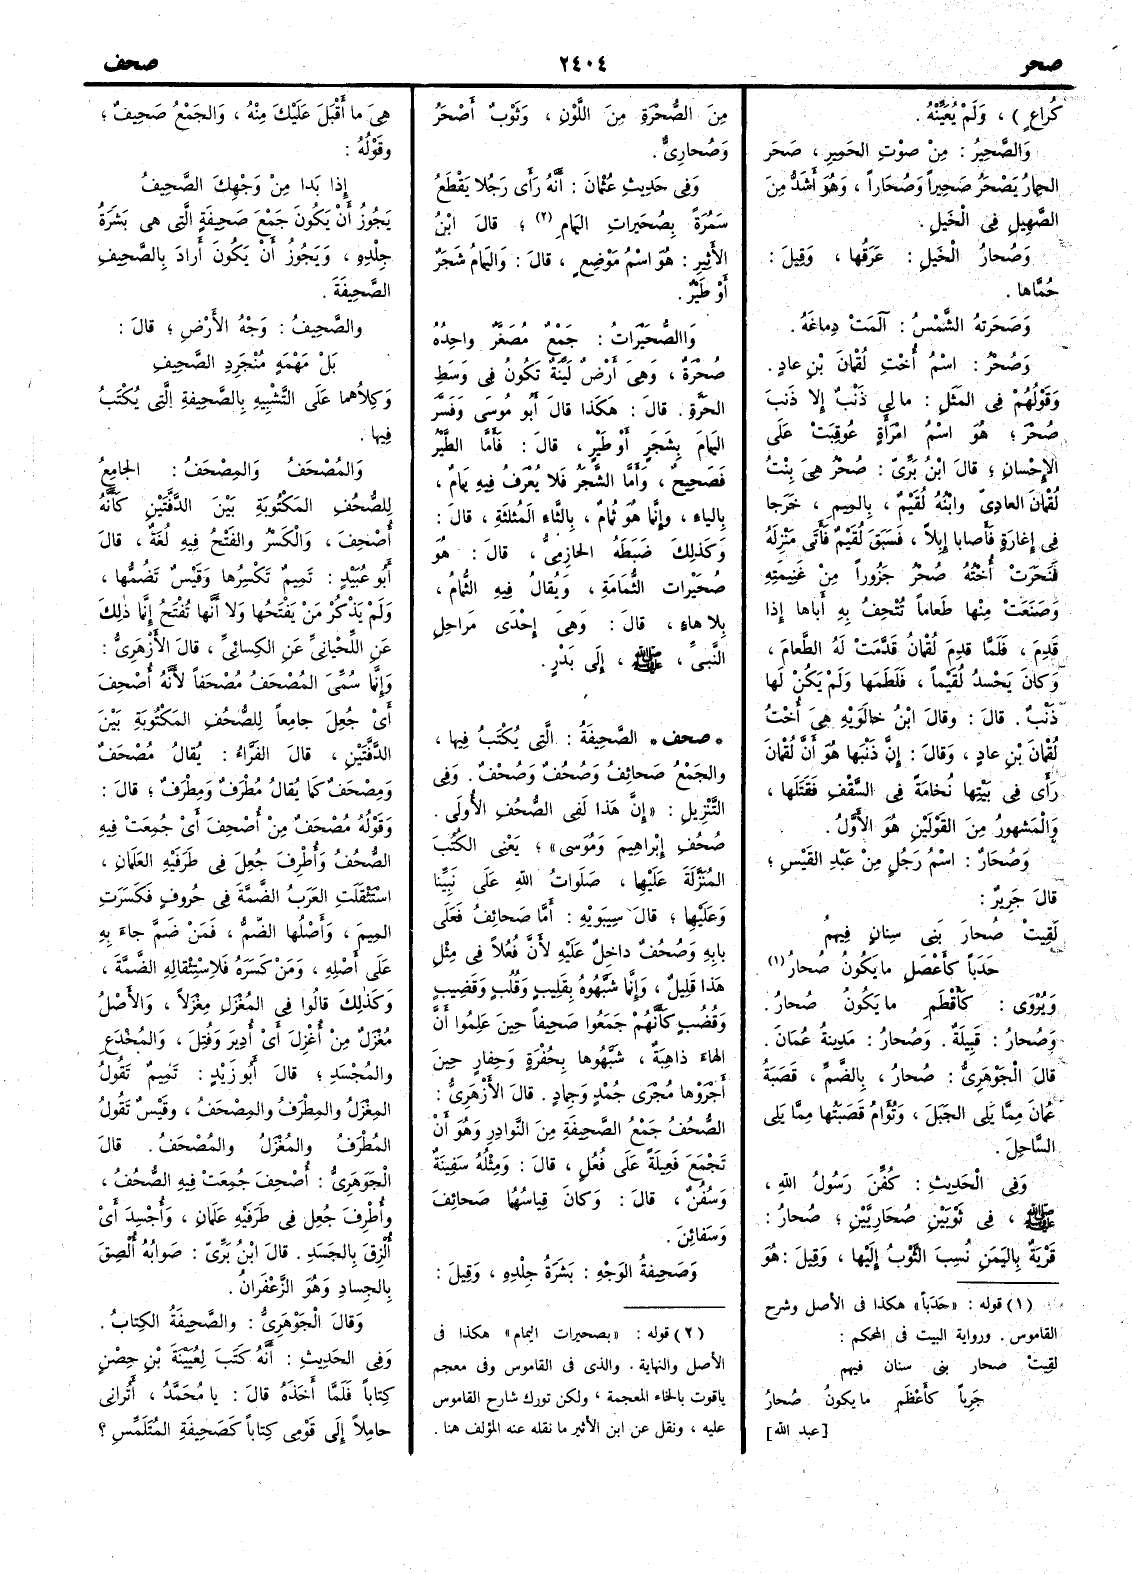 صحر
٢٤٠٤
صحف
كُراعٍ ) ، وَلَمْ يُعَيِّنْهُ .
وَالصَّحِيرُ : مِنْ صَوْتِ الحَمِيرِ ، صَحَرَ
الحِمارُ يَصْحَرُ صَحِيراً وَصُحَاراً ، وَهُوَ أَشَدُّ مِنَ
الصَّهِيلِ فِى الْخَيْلِ .
وَصُحَارُ الْخَيْلِ : عَرَقُها ، وَقِيلَ :
حُمَّاها .
وَصَحَرَتهُ الشَّمْسُ : آلَمَتْ دِماغَهُ .
وَصُحْرُ : اسْمُ أُخْتِ لُقْمَانَ بْنِ عادٍ .
وَقَوْلُهُمْ فِى المَثَلِ : ما لِى ذَنْبٌ إِلا ذَنْبَ
صُحْرَ ؛ هُوَ اسْمُ امْرَأَةٍ عُوقِبَتْ عَلَى
الإِحْسانِ ؛ قالَ ابْنُ بَرِّىّ : صُحْرُ هِىَ بِنْتُ
لُقْمَانَ العادِىّ وابْنُهُ لُقَيْمٌ ، بِالمِيمِ ، خَرَجا
فِى إِغارَةٍ فَأَصابا إِبِلاً ، فَسَبَقَ لُقَيْمٌ فَأَتَى مَنْزِلَهُ
فَنَحَرَتْ أُخْتُهُ صُحْرُ جَزُوراً مِنْ غَنِيمَتِهِ
وَصَنَعَتْ مِنْها طَعاماً تُتْحِفُ بِهِ أَباها إِذا
قَدِمَ ، فَلَمَّا قَدِمَ لُقْمَانُ قَدَّمَتْ لَهُ الطَّعامَ ،
وَكانَ يَحْسدُ لُقَيْماً ، فَلَطَمَها وَلَمْ يَكُنْ لَها
ذَنْبٌ . قالَ : وقالَ ابْنُ خالَوَيْهِ هِىَ أُخْتُ
لُقْمَانَ بْنِ عادٍ ، وَقالَ : إِنَّ ذَنْبَها هُوَ أَنَّ لُقْمَانَ
رَأَى فِى بَيْتِها نُخامَةً فِى السَّقْفِ فَقَتَلَها ،
وَالْمَشهُورُ مِنَ القَوْلَيْنِ هُوَ الأَوَّلُ .
وَصُحَارٌ : اسْمُ رَجُلٍ مِنْ عَبْدِ القَيْسِ ؛
قالَ جَرِيرٌ :
لَقِيتْ صُحَارَ بَنِى سِنانٍ فِيهِمُ
حَدَباً كَأَعْصَلِ ما يَكُونُ صُحَارُ (١)
وَيُرْوَى : كَأَقْطَمِ ما يَكُونُ صُحَارُ .
وَصُحارُ : قَبِيلَةٌ . وَصُحَارُ : مَدِينَةُ عُمَانَ .
قالَ الْجَوْهَرِىُّ : صُحَارُ ، بِالضَّمِّ ، قَصَبَةُ
عُمَانَ مِمَّا يَلِى الجَبَلَ ، وَتُؤَامُ قَصَبَتُها مِمَّا يَلِى
السَّاحِلَ .
وَفِى الْحَدِيثِ : كُفِّنَ رَسُولُ اللهِ ،
ﷺ ، فِى ثَوْبَيْنِ صُحَارِيَّيْنِ ؛ صُحَارُ :
قَرْيَةٌ بِاليَمَنِ نُسِبَ الثَّوْبُ إِلَيْها ، وَقِيلَ : هُوَ
(١) قوله : «حَدَباً» هكذا فى الأصل وشرح
القاموس . ورواية البيت فى المحكم :
لقِيتْ صحار بنى سنان فيهم
جَرِباً كَأَعْظَمِ مايكونُ صُحارُ
[عبد الله]
مِنَ الصُّحْرَةِ مِنَ اللَّوْنِ ، وَثَوْبٌ أَصْحَرُ
وَصُحارِىٌّ .
وَفِى حَدِيثِ عُثْمَانَ : أَنَّهُ رَأَى رَجُلا يَقْطَعُ
سَمُرَةً بِصُحَيراتِ اليَمَامِ (٢) ؛ قالَ ابْنُ
الأَثِيرِ : هُوَ اسْمُ مَوْضِعٍ ، قالَ : وَاليَمَامُ شَجَرٌ
أَوْ طَيْرٌ .
وَاالصُّحَيْرَاتُ : جَمْعٌ مُصَغَّرٌ واحِدُهُ
صُحْرَةٌ ، وَهِىَ أَرْضٌ لَيِّنَةٌ تَكُونُ فِى وَسَطِ
الحَرَّةِ . قالَ : هٰكَذا قالَ أَبُو مُوسَى وَفَسَّرَ
اليَمَامَ بِشَجَرٍ أَوْ طَيْرٍ ، قالَ : فَأَمَّا الطَّيْرُ
فَصَحِيحٌ ، وَأَمَّا الشَّجَرُ فَلا يُعْرَفُ فِيهِ يَمَامٌ ،
بِالياءِ ، وإِنَّما هُوَ ثُمَامٌ ، بِالثَّاءِ الْمُثَلَّثَةِ ، قالَ :
وَكَذٰلِكَ ضَبَطَهُ الحازِمِىُّ ، قالَ : هُوَ
صُحَيْرات الثُّمَامَةِ ، وَيُقالُ فِيهِ الثُّمَامُ ،
بِلا هاءٍ ، قالَ : وَهِىَ إِحْدَى مَراحِلِ
النَّبِىِّ ، ﷺ ، إِلَى بَدْرٍ .
* صحف * الصَّحِيفَةُ : الَّتِى يُكْتَبُ فِيها ،
والجَمْعُ صَحائِفُ وَصُحُفٌ وَصُحْفٌ . وَفِى
التَّنْزِيلِ : «إِنَّ هَذا لَفِى الصُّحُفِ الأُولَى .
صُحُفِ إِبْراهِيمَ وَمُوسَى» ؛ يَعْنِى الكُتُبَ
المُنْزَّلَةَ عَلَيْهِما ، صَلَواتُ اللهِ عَلَى نَبِيِّنا
وَعَلَيْهِما ؛ قالَ سِيبَوَيْهِ : أَمَّا صَحائِفُ فَعَلَى
بابِهِ وَصُحُفٌ داخِلٌ عَلَيْهِ لأَنَّ فُعُلاً فِى مِثْلِ
هَذا قَلِيلٌ ، وَإِنَّما شَبَّهُوهُ بِقَلِيبٍ وَقُلُبٍ وَقَضِيبٍ
وَقُضُبٍ كَأَنَّهُمْ جَمَعُوا صَحِيفاً حِينَ عَلِمُوا أَنَّ
الهاءَ ذاهِبَةٌ ، شَبَّهُوها بِحُفْرَةٍ وَحِفارٍ حِينَ
أَجْرَوْها مُجْرَى جُمْدٍ وَجِمادٍ . قالَ الأَزْهَرِىُّ :
الصُّحُفُ جَمْعُ الصَّحِيفَةِ مِنَ النَّوادِرِ وَهُوَ أَنْ
تَجْمَعَ فَعِيلَةً عَلَى فُعُلٍ ، قالَ : وَمِثْلُهُ سَفِينَةٌ
وَسُفُنٌ ، قالَ : وَكانَ قِياسُهُما صَحائِفَ
وَسَفائِنَ .
وَصَحِيفَةُ الوَجْهِ : بَشَرَةُ جِلْدِهِ ، وَقِيلَ :
(٢) قوله : «بصحيرات اليمام» هكذا فى
الأصل والنهاية . والذى فى القاموس وفى معجم
ياقوت بالخاء المعجمة ، ولكن تورك شارح القاموس
عليه ، ونقل عن ابن الأثير ما نقله عنه المؤلف هنا .
هِىَ ما أَقْبَلَ عَلَيْكَ مِنْهُ ، وَالجَمْعُ صَحِيفٌ ؛
وقَوْلُهُ :
إِذا بَدا مِنْ وَجْهِكَ الصَّحِيفُ
يَجُوزُ أَنْ يَكُونَ جَمْعَ صَحِيفَةٍ الَّتِى هِى بَشَرَةُ
جِلْدِهِ ، وَيَجُوزُ أَنْ يَكُونَ أَرادَ بِالصَّحِيفِ
الصَّحِيفَةَ .
والصَّحِيفُ : وَجْهُ الأَرْضِ ؛ قالَ :
بَلْ مَهْمَهٍ مُنْجَرِدِ الصَّحِيفِ
وَكِلاُهما عَلَى التَّشْبِيهِ بِالصَّحِيفَةِ الَّتِى يُكْتَبُ
فِيها .
وَالمُصْحَفُ وَالمِصْحَفُ : الجامِعُ
لِلصُّحُفِ المَكْتُوبَةِ بَيْنَ الدَّفَّتَيْنِ كَأَنَّهُ
أُصْحِفَ ، وَالْكَسْرُ والفَتْحُ فِيهِ لُغَةٌ ، قالَ
أَبُو عُبَيْدٍ : تَمِيمٌ تَكْسِرُها وَقَيْسٌ تَضُمُّها ،
وَلَمْ يَذْكُرْ مَنْ يَفْتَحُها وَلا أَنَّها تُفْتَحُ إِنَّما ذٰلِكَ
عَنِ اللِّحْيانِىِّ عَنِ الكِسائِىِّ ، قالَ الأَزْهَرِىُّ :
وَإِنَّما سُمِّىَ المُصْحَفُ مُصْحَفاً لأَنَّهُ أُصْحِفَ
أَىْ جُعِلَ جامِعاً لِلصُّحُفِ المَكْتُوبَةِ بَيْنَ
الدَّفَّتَيْنِ ، قالَ الفَرَّاءُ : يُقالُ مُصْحَفٌ
وَمِصْحَفٌ كَما يُقالُ مُطْرَفٌ وَمِطْرَفٌ ؛ قالَ :
وَقَوْلُهُ مُصْحَفٌ مِنْ أُصْحِفَ أَىْ جُمِعَتْ فِيهِ
الصُّحُفُ وَأُطْرِفَ جُعِلَ فِى طَرَفَيْهِ العَلَمَانِ ،
اسْتَثْقَلَتِ العَرَبُ الضَّمَّةَ فِى حُرُوفٍ فَكَسَرَتِ
المِيمَ ، وَأَصْلُها الضَّمُّ ، فَمَنْ ضَمَّ جاءَ بِهِ
عَلَى أَصْلِهِ ، وَمَنْ كَسَرَهُ فَلاِسْتِثْقالِهِ الضَّمَّةَ ،
وَكَذٰلِكَ قالُوا فِى المُغْزَلِ مِغْزَلاً ، وَالأَصْلُ
مُغْزَلٌ مِنْ أُغْزِلَ أَىْ أُدِيرَ وَفُتِلَ ، وَالمُخْدَعِ
والمُجْسَدِ ؛ قالَ أَبُو زَيْدٍ : تَمِيمٌ تَقُولُ
المِغْزَلُ والمِطْرَفُ والمِصْحَفُ ، وقَيْسٌ تَقُولُ
المُطْرَفُ والمُغْزَلُ والمُصْحَفُ . قالَ
الْجَوهَرِىُّ : أُصْحِفَ جُمِعَتْ فِيهِ الصُّحُفُ ،
وأُطْرِفَ جُعِل فِى طَرَفَيْهِ عَلَمَانِ ، وَأُجْسِدَ أَىْ
أُلْزِقَ بِالجَسَدِ . قالَ ابْنُ بَرِّىّ : صَوابُهُ أُلْصِقَ
بِالجِسادِ وَهُوَ الزَّعْفَرانُ .
وَقالَ الْجَوْهَرِىُّ : والصَّحِيفَةُ الكِتابُ .
وَفِى الحَدِيثِ : أَنَّهُ كَتَبَ لِعُيَيْنَةَ بْنِ حِصْنٍ
كِتاباً فَلَمَّا أَخَذَهُ قالَ : يا مُحَمَّدُ ، أَتُرانِى
حامِلاً إِلَى قَوْمِى كِتاباً كَصَحِيفَةِ المُتَلَمِّسِ ؟